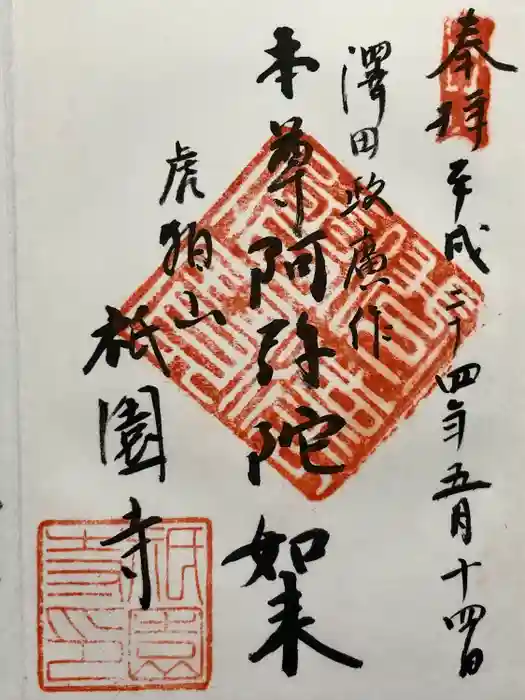 奉拝
平成二十四年五月十四日
澤田政廣作
本尊阿弥陀如来
虎狛山
祇園寺
祇園寺印